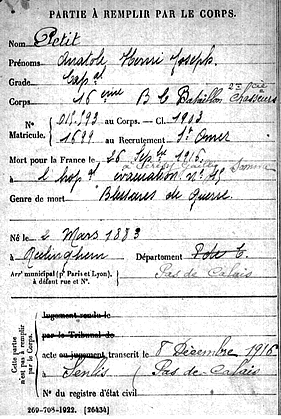 PARTIE À REMPLIR PAR LE CORPS.
Nom Petit
Prénoms Anatole Henri Joseph
Grade Capal
Corps 16ème B C Bataillon Chasseurs
N° 011.593 au Corps. — Cl. 1903
Matricule. 1689 au Recrutement St Omer
Mort pour la France le 26 Sepbre 1916
à l'hopal évacuation n° Somme
Genre de mort Blessures de Guerre
Né le 2 Mars 1883
à Reclinghem Département P de C
Pas de Calais
Arrt municipal (pr Paris et Lyon),
à défaut rue et N°.
Cette partie n'est pas à remplir par le Corps.
jugement rendu le
par le Tribunal de
acte ou jugement transcrit le 8 Décembre 1916
à Senlis (Pas-de-Calais
N° du registre d'état civil
269-708-1922. [26434]